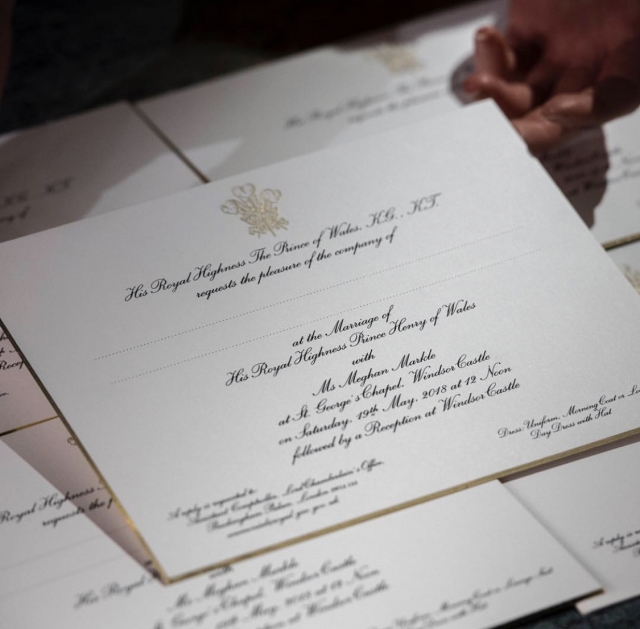 His Royal Highness The Prince of Wales, K.G., K.T.
requests the pleasure of the company of
at the Marriage of
His Royal Highness Prince Henry of Wales
with
Ms Meghan Markle
at St. George's Chapel, Windsor Castle
on Saturday, 19th May, 2018 at 12 Noon
followed by a Reception at Windsor Castle
Dress: Uniform, Morning Coat or
Day Dress with Hat
A reply is requested to:
Lord Chamberlain's Office,
Buckingham Palace, London
His Royal
Ms Meghan Markle
George's Chapel, Windsor Castle
May, 2018 at 12 Noon
Reception at Windsor Castle
Uniform, Morning Coat or Lounge Suit
Royal Highness
requests the
A reply is